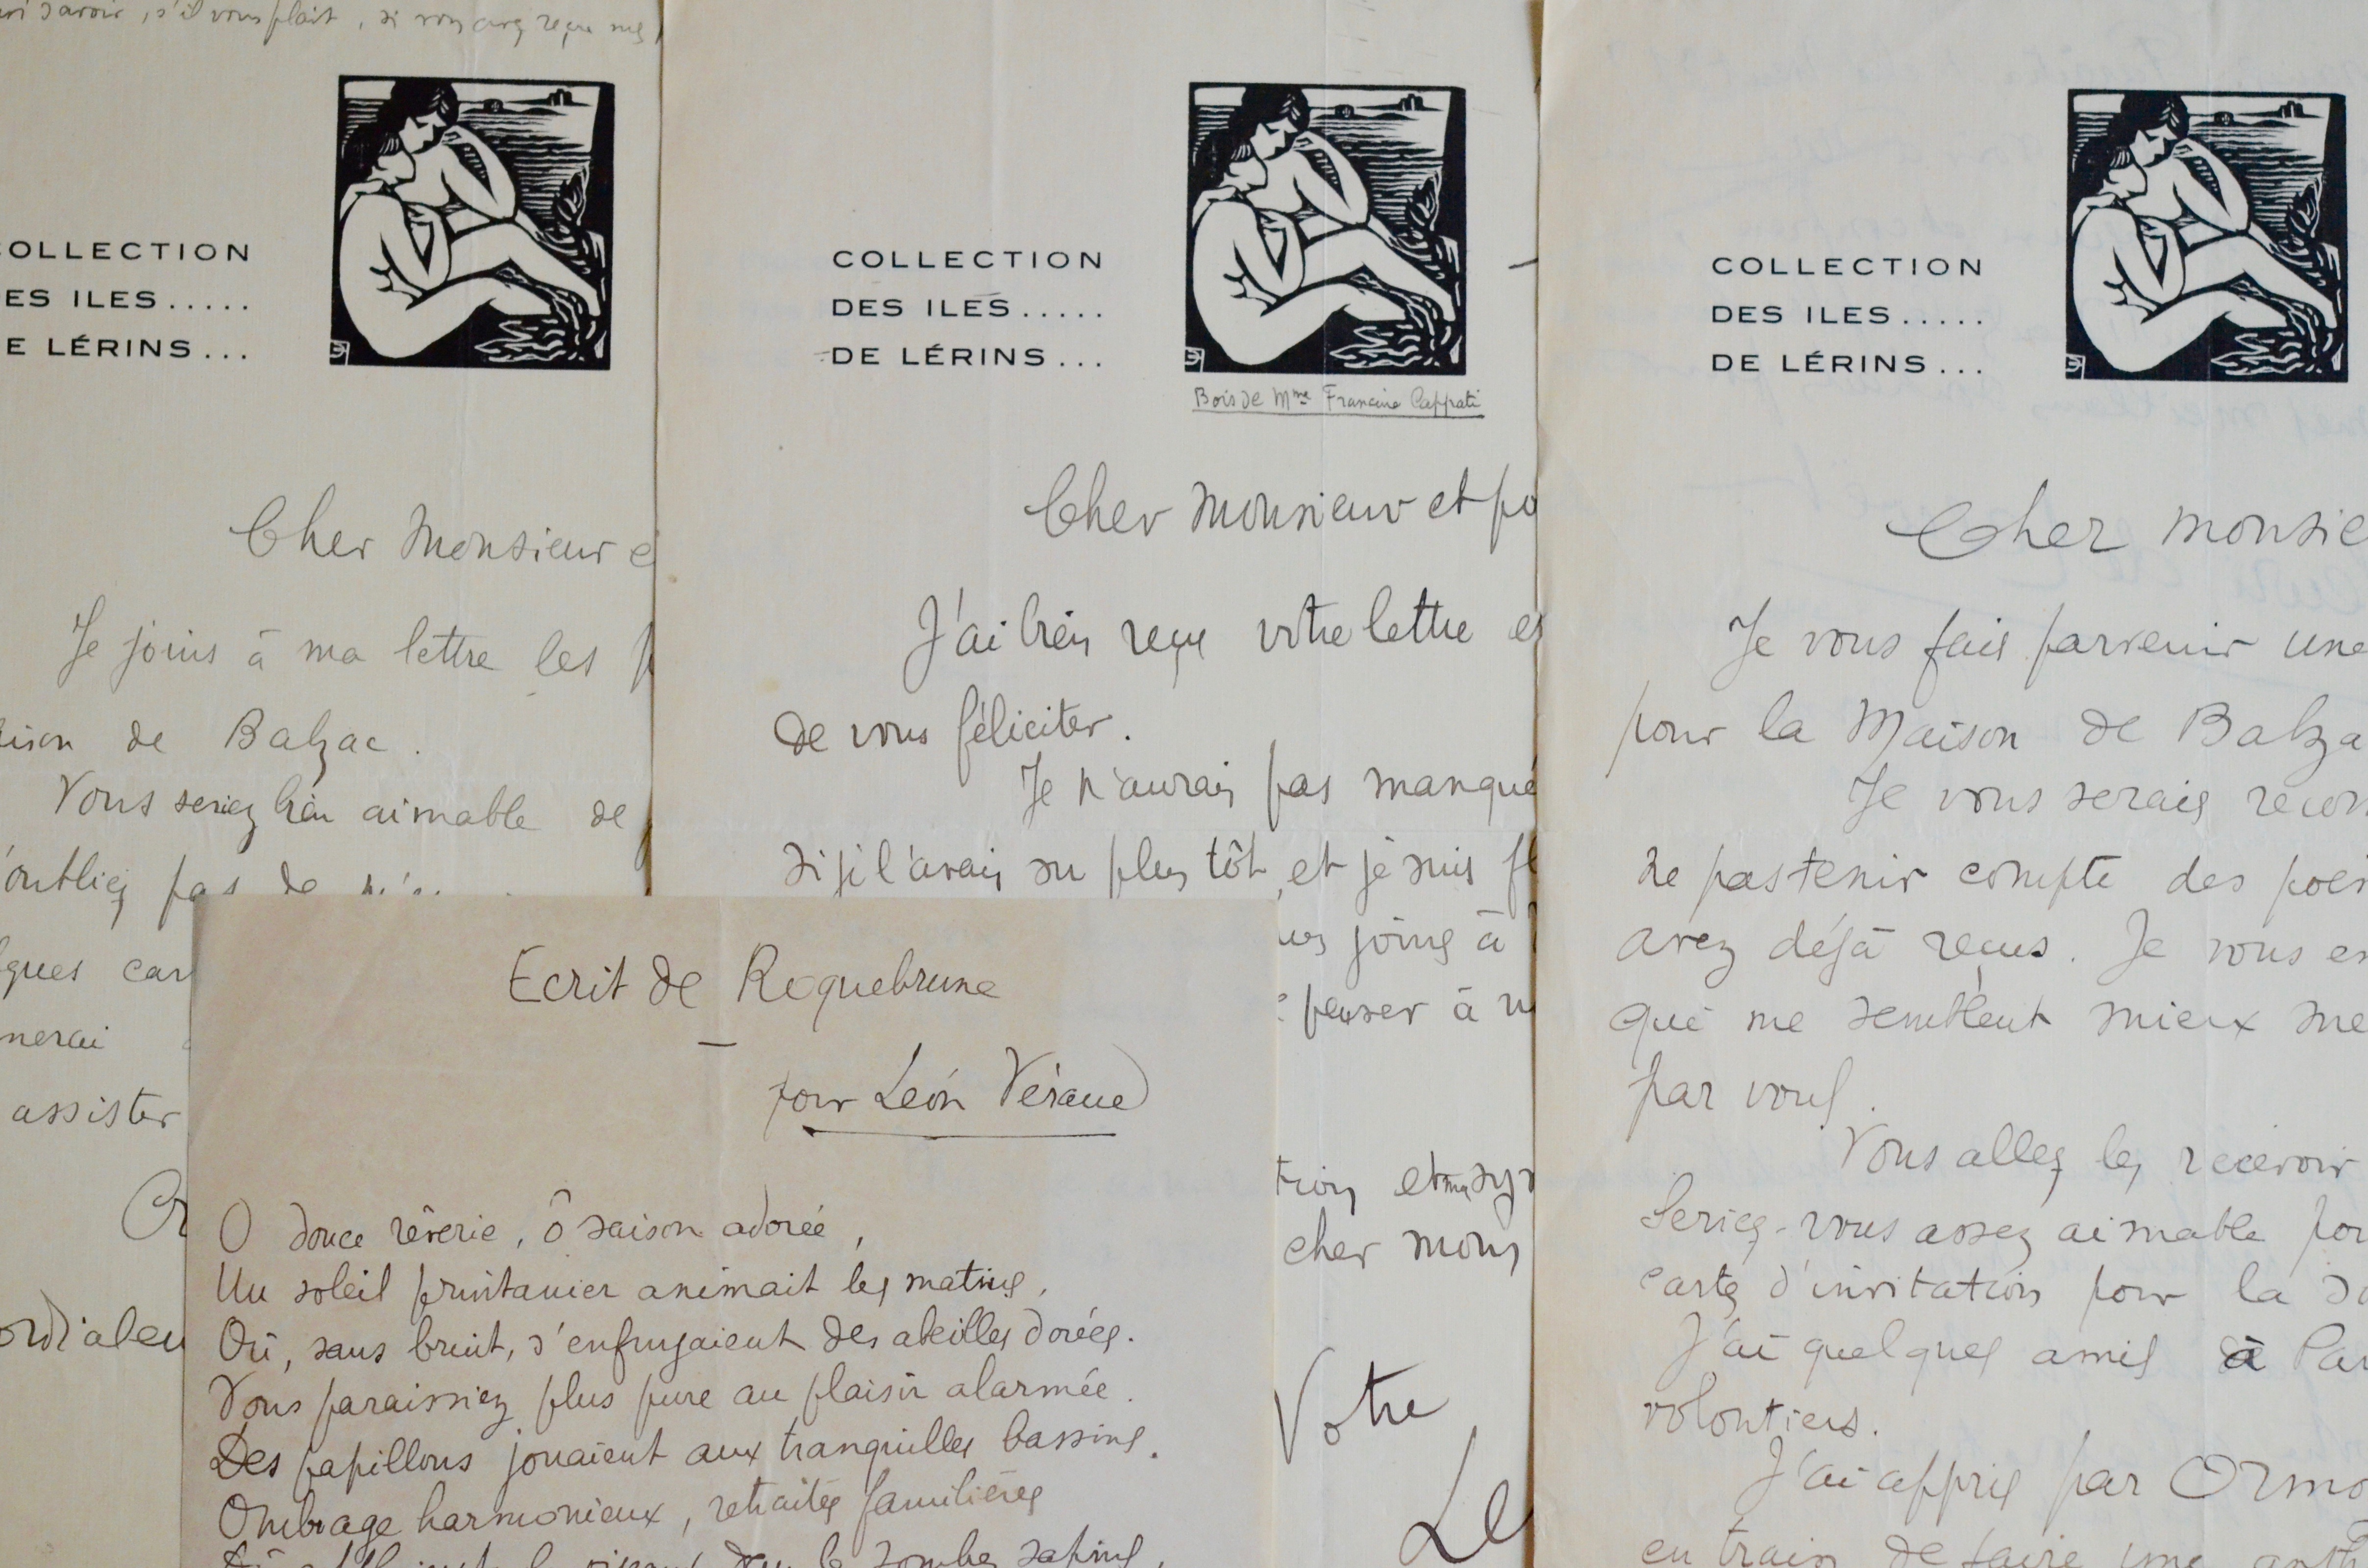 savoir, s'il vous plait, si vous avez reçu mes
COLLECTION
DES ILES.....
DE LÉRINS...
Cher Monsieur
Je joins à ma lettre les
de Balzac.
Vous seriez bien aimable de
oubliez pas de
ques car
nerai
assister
COLLECTION
DES ILES.....
DE LÉRINS...
Bois de Mme Francine Cappati
Cher Monsieur et po
J'ai bien reçu votre lettre et
de vous féliciter.
Je n'aurais pas manqué
si je l'avais su plus tôt, et je suis
joins à
penser à
tion et ma sy
cher mons
Votre
Le
COLLECTION
DES ILES.....
DE LÉRINS...
Cher monsie
Je vous fais parvenir une
pour la Maison de Balza
Je vous serais recon
ne pas tenir compte des poè
avez déjà reçus. Je vous en
que me semblent mieux me
par vous.
Vous allez les recevoir
Seriez-vous assez aimable pou
carte d'invitation pour la
J'ai quelques amis à Par
volontiers.
J'ai appris par Ormo
en train de faire une
Ecrit de Roquebrune
pour Léon Vérane
O douce rêverie, ô saison adorée,
Un soleil printanier animait les matins,
Où, sans bruit, s'enfuyaient des abeilles dorées.
Vous paraissiez plus pure au plaisir alarmée.
Des papillons jouaient aux tranquilles bassins.
Ombrage harmonieux, retraites familières